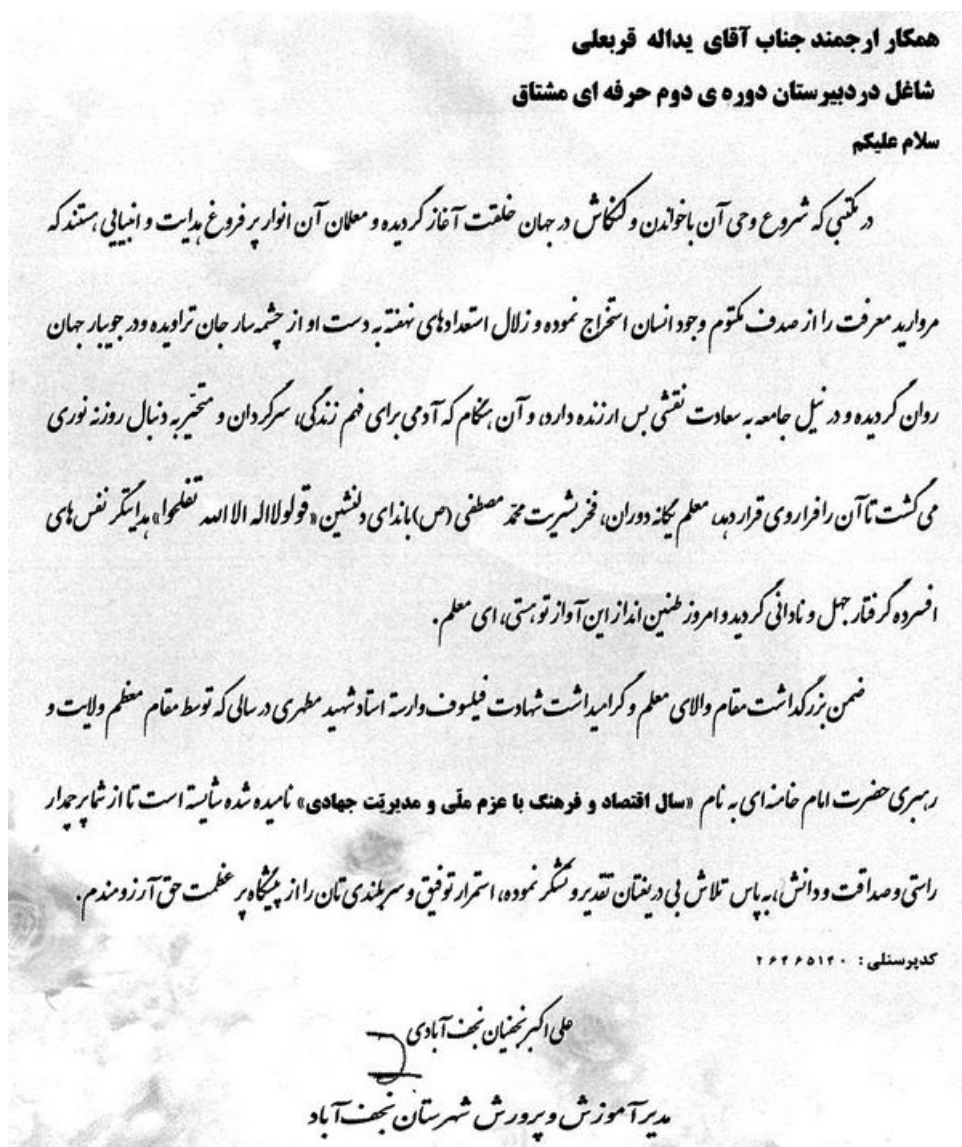 همکار ارجمند جناب آقای یداله قربعلی
شاغل در دبیرستان دوره ی دوم حرفه ای مشتاق
سلام علیکم
در مکتبی که شروع وحی آن باخواندن و کنکاش در جهان خلقت آغاز گردیده و معلمان آن انوار پر فروغ هدایت و انبیایی هستند که
مروارید معرفت را از صدف مکتوم وجود انسان استخراج نموده و زلال استعدادهای نهفته به دست او از چشمه سار جان تراویده ودر جویبار جهان
روان گردیده و در نیل جامعه به سعادت نقشی بس ارزنده دارد، و آن هنگام که آدمی برای فهم زندگی، سرگردان و متحیّر به دنبال روزنه نوری
می گشت تا آن را فراروی قرار دهد، معلم یگانه دوران، فخر بشریت محمّد مصطفی (ص) باندای دلنشین «قولولااله الا الله تفلحوا» هدایتگر نفس های
افسرده گرفتار جهل و نادانی گردید و امروز طنین انداز این آواز تو هستی، ای معلم.
ضمن بزرگداشت مقام والای معلم و گرامیداشت شهادت فیلسوف وارسته استاد شهید مطهری در سالی که توسط مقام معظم ولایت و
رهبری حضرت امام خامنه ای به نام «سال اقتصاد و فرهنگ با عزم ملّی و مدیریّت جهادی» نامیده شده شایسته است تا از شما پرچمدار
راستی و صداقت و دانش، به پاس تلاش بی دریغتان تقدیر و تشکر نموده، استمرار توفیق و سربلندی تان را از پیشگاه پر عظمت حق آرزومندم.
کدپرسنلی :
علی اکبر نجفیان نجف آبادی
مدیر آموزش و پرورش شهرستان نجف آباد